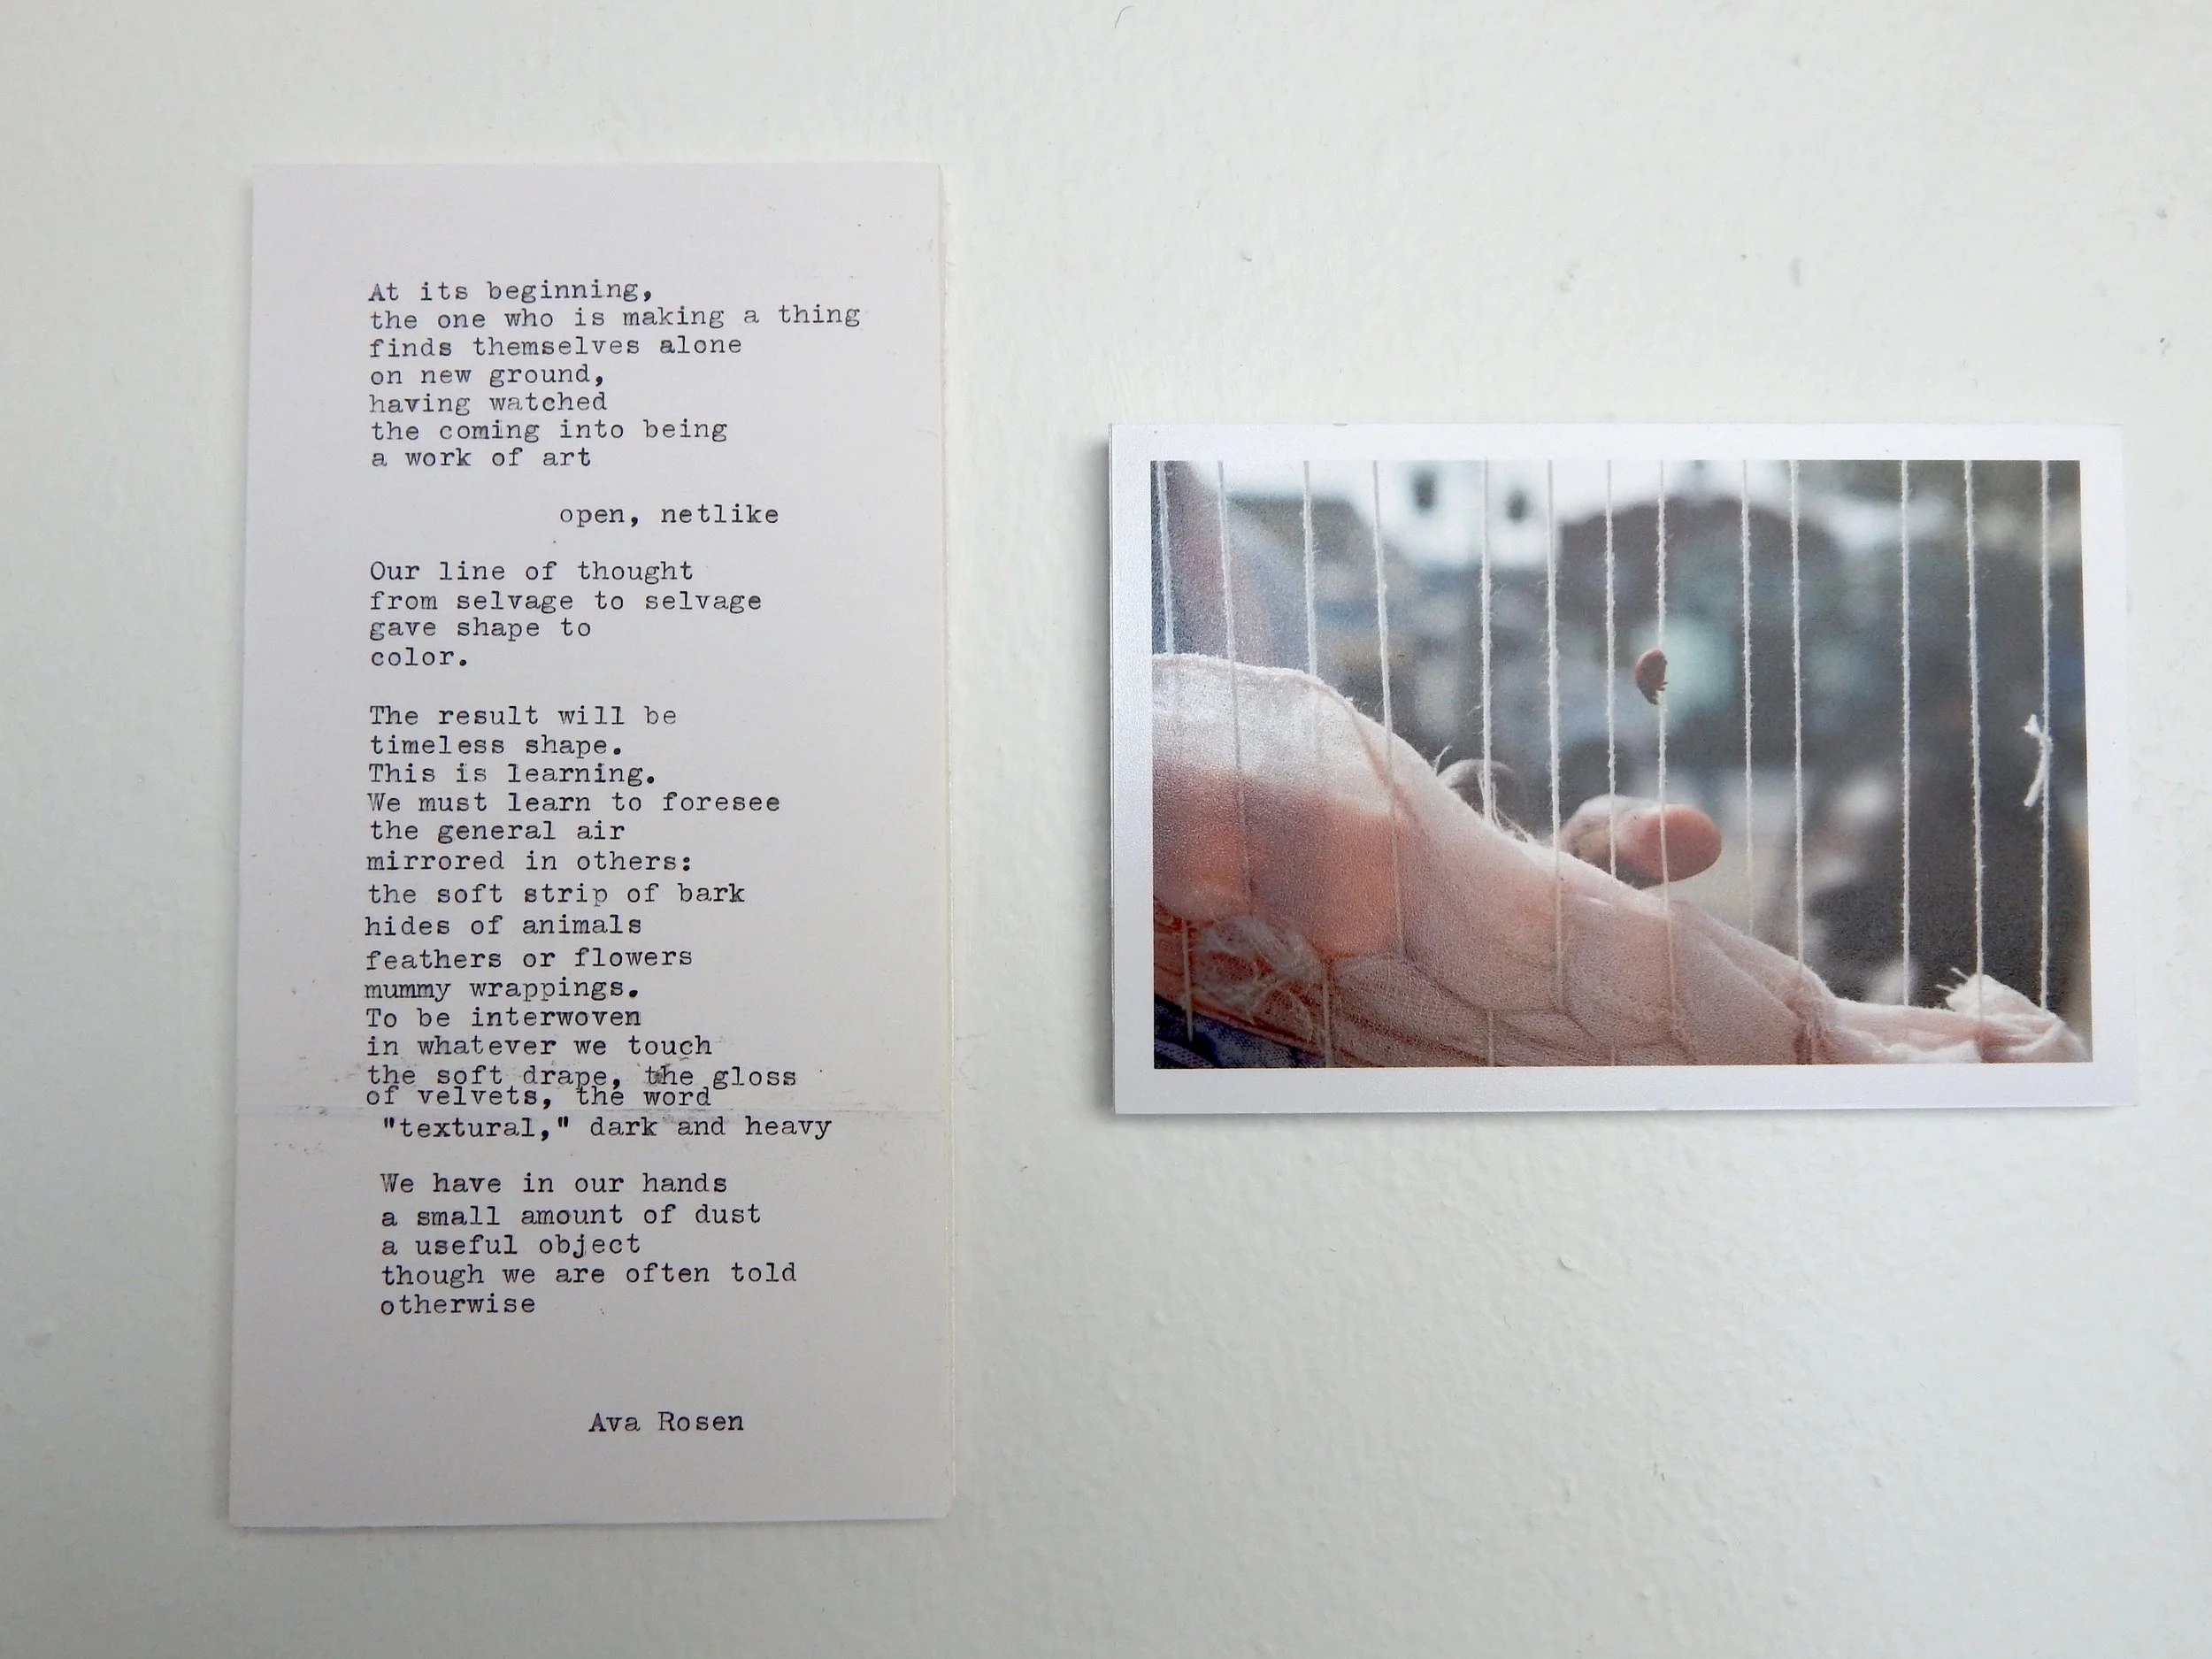 At its beginning,
the one who is making a thing
finds themselves alone
on new ground,
having watched
the coming into being
a work of art
open, netlike
Our line of thought
from selvage to selvage
gave shape to
color.
The result will be
timeless shape.
This is learning.
We must learn to foresee
the general air
mirrored in others:
the soft strip of bark
hides of animals
feathers or flowers
mummy wrappings.
To be interwoven
in whatever we touch
the soft drape, the gloss
of velvets, the word
"textural," dark and heavy
We have in our hands
a small amount of dust
a useful object
though we are often told
otherwise
Ava Rosen